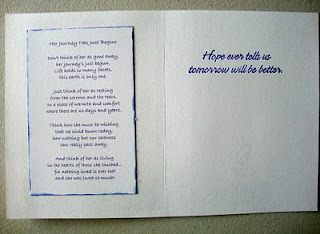 Her Journey Has Just Begun
Don't think of her as gone away
her journey's just begun.
Life holds so many facets,
this earth is only one.
Just think of her as resting
from the sorrows and the tears,
in a place of warmth and comfort
where there are no days and years.
Think how she must be wishing
that we could know today,
how nothing but our sadness
can really pass away.
And think of her as living
in the hearts of those she touched...
for nothing loved is ever lost
and she was loved so much!
Hope ever tells us
tomorrow will be better.